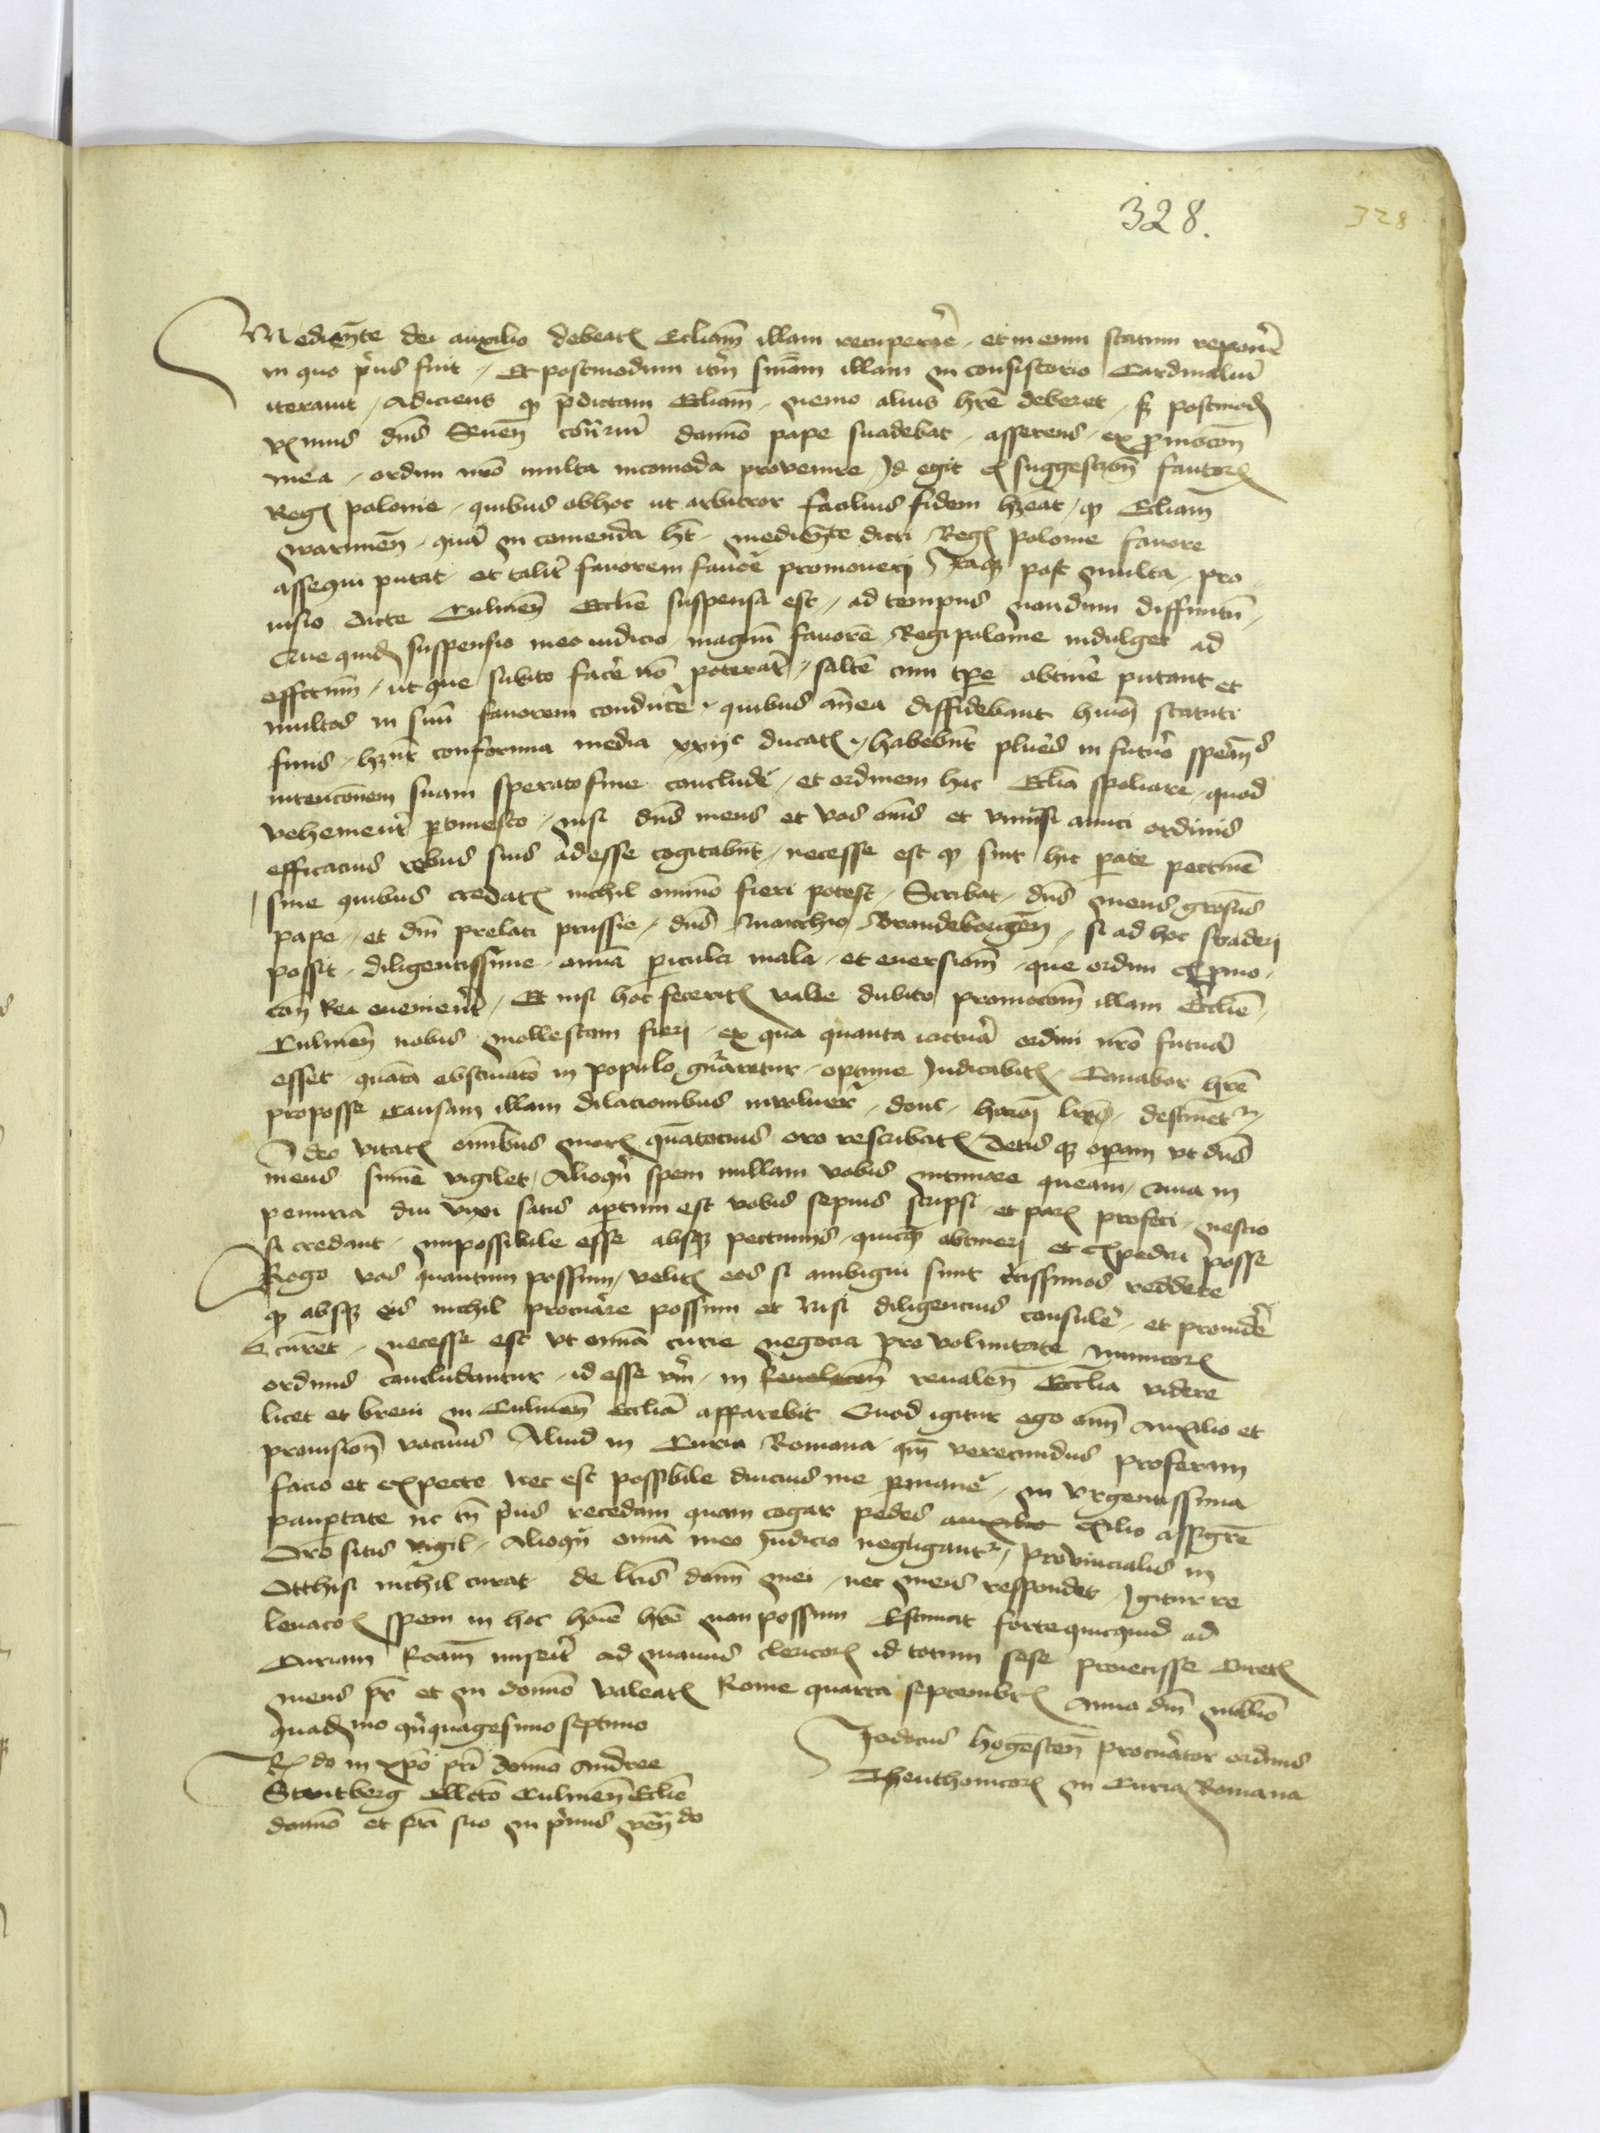 328.
328
Mediante dei auxilio debeatis Ecliam illam recuperare et in eum statum reponere
in quo prius fuit Et postmodum iterum suam illam in consistorio Cardinalium
iteravit Adiciens quod predictam Ecliam nemo alius habere deberet sed postmodum
dominus Senen contrarium domino pape suadebat asserens ex promocione
mea ordini nostro multa incomoda provenire Id egit ex suggestione fautorum
Regis polonie quibus ob hoc ut arbitror facilius fidem habeat quod Ecliam
Warmien quam in comenda habet mediante dicti Regis polonie favore
assequi putat et taliter favorem favore promoveri Itaque post multa pro
visio dicte Culmen Ecclie suspensa est ad tempus nondum diffinitum
Que quidem suspensio meo iudicio magnum favorem Regi polonie indulget ad
effectum ut que subito facere non poterant saltem cum tempore obtinere putant et
multos in suum favorem conducere quibus antea diffidebant huius statuti
finis habent conformia media xxii c ducatos habebunt plures in futuro sperantes
intencionem suam sperato fine concludere et ordinem hac Eclia spoliare quod
vehementer pertimesco nisi dominus meus et vos omnes et universi amici ordinis
efficacius rebus suis adesse cogitabunt necesse est quod sint hic parate peccunie
sine quibus credatis nichil omnino fieri potest Scribat dominus meus generosus
pape et domini prelati prussie dominus Marchio Brandeborgen si ad hoc suaderi
possit diligentissime omnia pericula mala et eversionem que ordini ex promo
cione Rei evenient Et nisi hoc feceritis valde dubito promocionem illam Ecclie
Culmen nobis mollestam fieri ex qua quanta iactura ordini nostro futura
esset quanta obstinatio in populo generaretur optime Judicabitis Conabor hercle
proposse Causam illam dilacionibus involvere donec horum littere destinentur
A deo vitatis omnibus moris quantocius oro rescribatis detis que operam ut dominus
meus summe vigilet Alioquin spem nullam vobis intimare queam Qua in
penuria diu vixi satis apertum est vobis sepius scripsi et parum profeci nescio
si credant impossibile esse absque peccuniis quicquam obtineri et expediri posse
Rogo vos quantum possum velitis eos si ambigui sunt certissimos reddere
quod absque eis nichil procurare possum et nisi diligencius consulere et providere
Curent necesse est ut omnia curie negocia pro voluntate inimicorum
ordinis concludantur id esse verum in revalen Ecclia videre
licet et brevi in Culmen eccliam apparebit Quod igitur ego omni auxilio et
provisione vacuus Aliud in Curia Romana quam verecundus proferam
facio et expecto nec est possibile diucius me permanere in urgentissima
paupertate nec tamen prius recedam quam cogar pedes auxilio exilio assignare
Oro sitis vigiles Alioquin omnia meo Judicio negligantur provincialis in
Otthisi nichil curat de litteris domini mei nec meis respondet Igitur re
levacionis spem in hoc homine habere non possum Estimat forte quicquid ad
Curiam Romanam miserit ad manus clericorum id totum sese proiecisse Curetis
meus pater et in domino Valeatis Rome quarta septembris Anno domini millesimo
quadringentesimo quinquagesimo septimo
Jodocus hogensten procurator ordinis
Theuthonicorum in Curia Romana
Reverendo in christo patri domino Andree
Santberg Electo Culmen Eclie
domino et patri suo in primis venerando